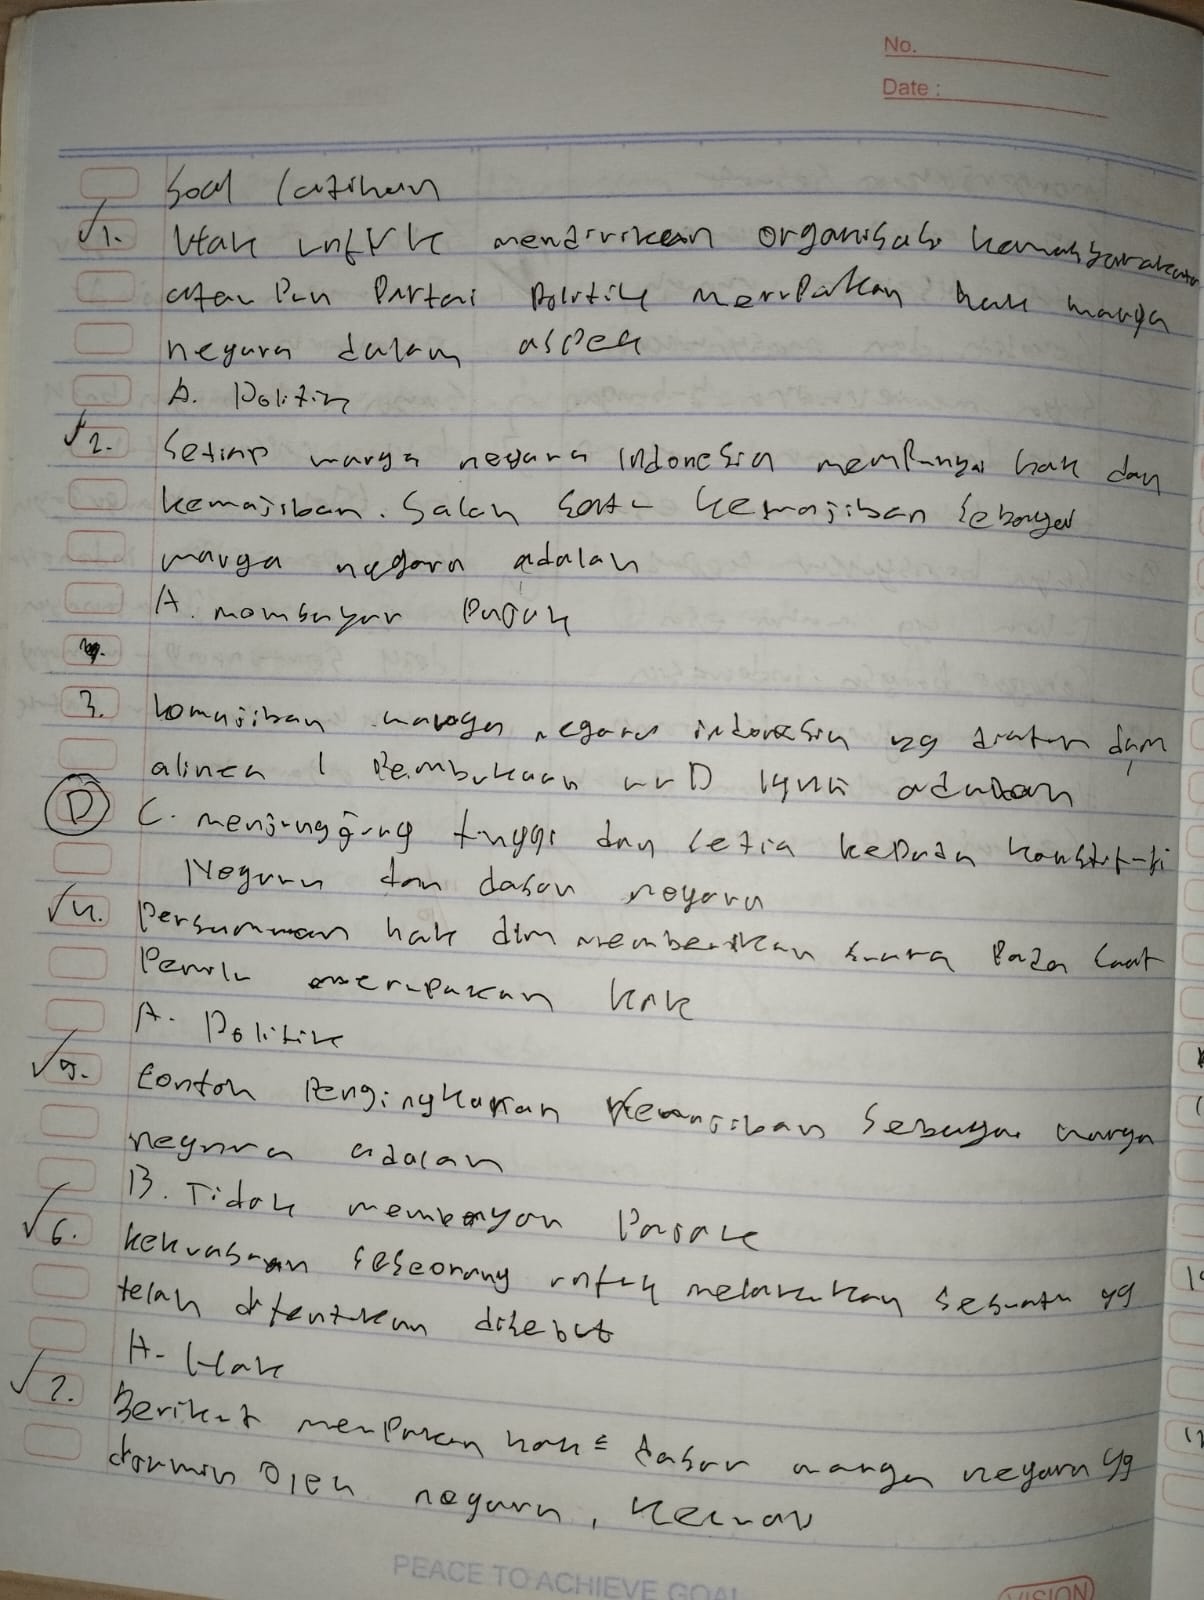 No.
Date :
Soal latihan
√1. Hak untuk mendirikan organisasi kemasyarakatan
ataupun Partai Politik merupakan hak warga
negara dalam aspek
A. Politik
√2. Setiap warga negara indonesia mempunyai hak dan
kewajiban. Salah satu kewajiban sebagai
warga negara adalah
A. membayar Pajak
3. kewajiban warga negara indonesia yg diatur dlm
alinea 1 Pembukaan UUD 1945 adalah
D C. menjunggung tinggi dan setia kepada konstitusi
Negara dan dasar negara
√4. Persamaan hak dlm memberikan suara Pada saat
Pemilu merupakan hak
A. Politik
√5. Contoh Pengingkaran kewajiban sebagai warga
negara adalah
B. Tidak membayar Pajak
√6. kekuasaan seseorang untuk melakukan sesuatu yg
telah ditentukan disebut
A. Hak
√7. Berikut merupakan hak² dasar warga negara yg
dijamin oleh negara, kecuali
PEACE TO ACHIEVE GOAL
VISION